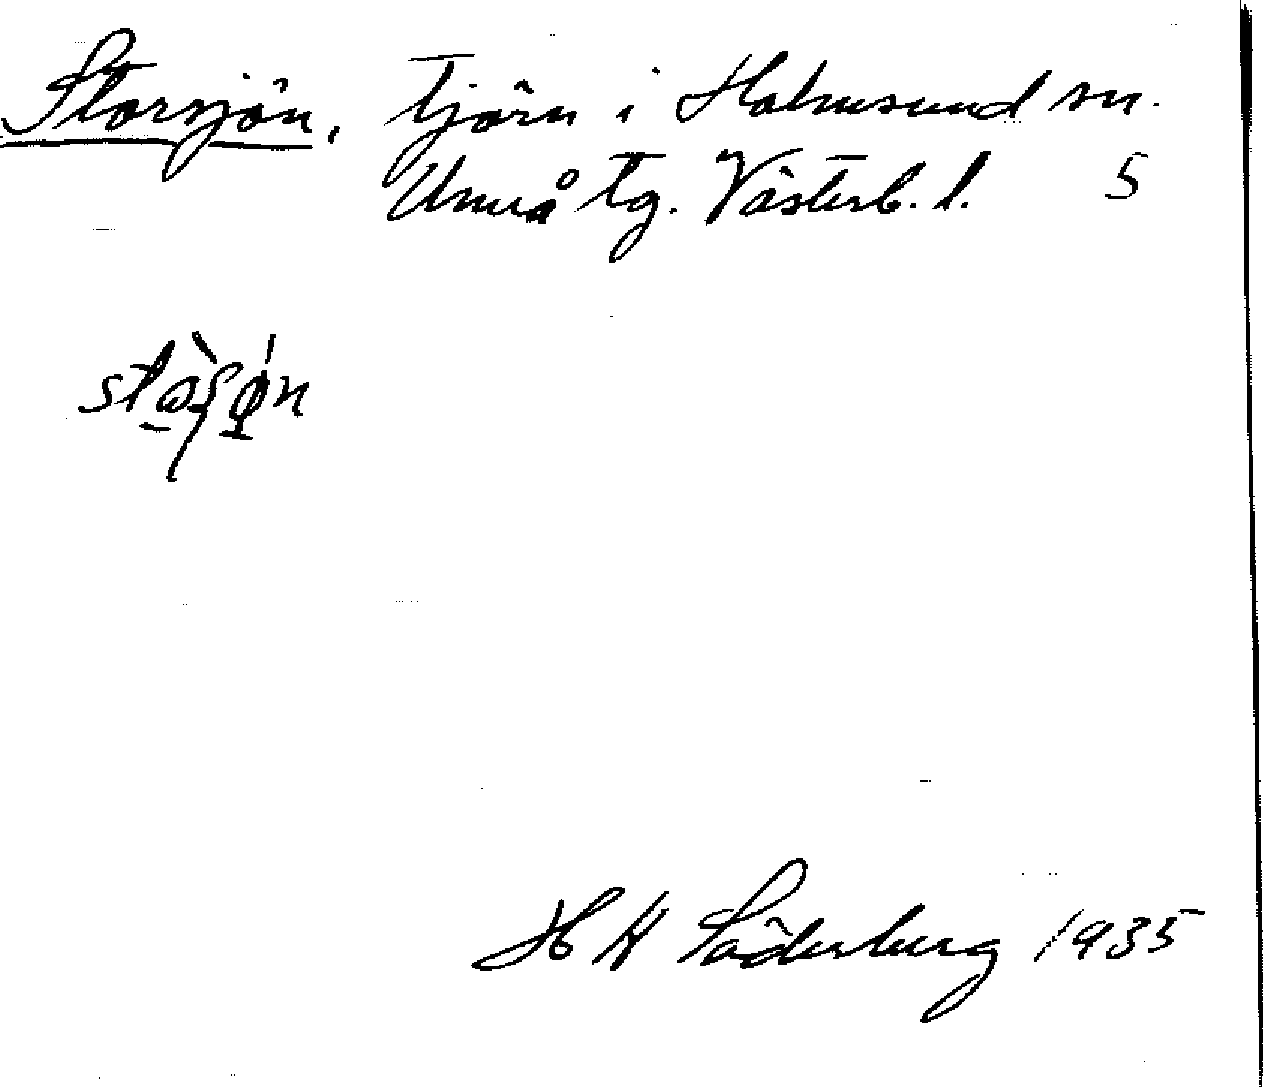 Storsjön, tjärn i Holmsund sn.
Umeå tg. Västerb. l. 5
H W Söderberg 1935